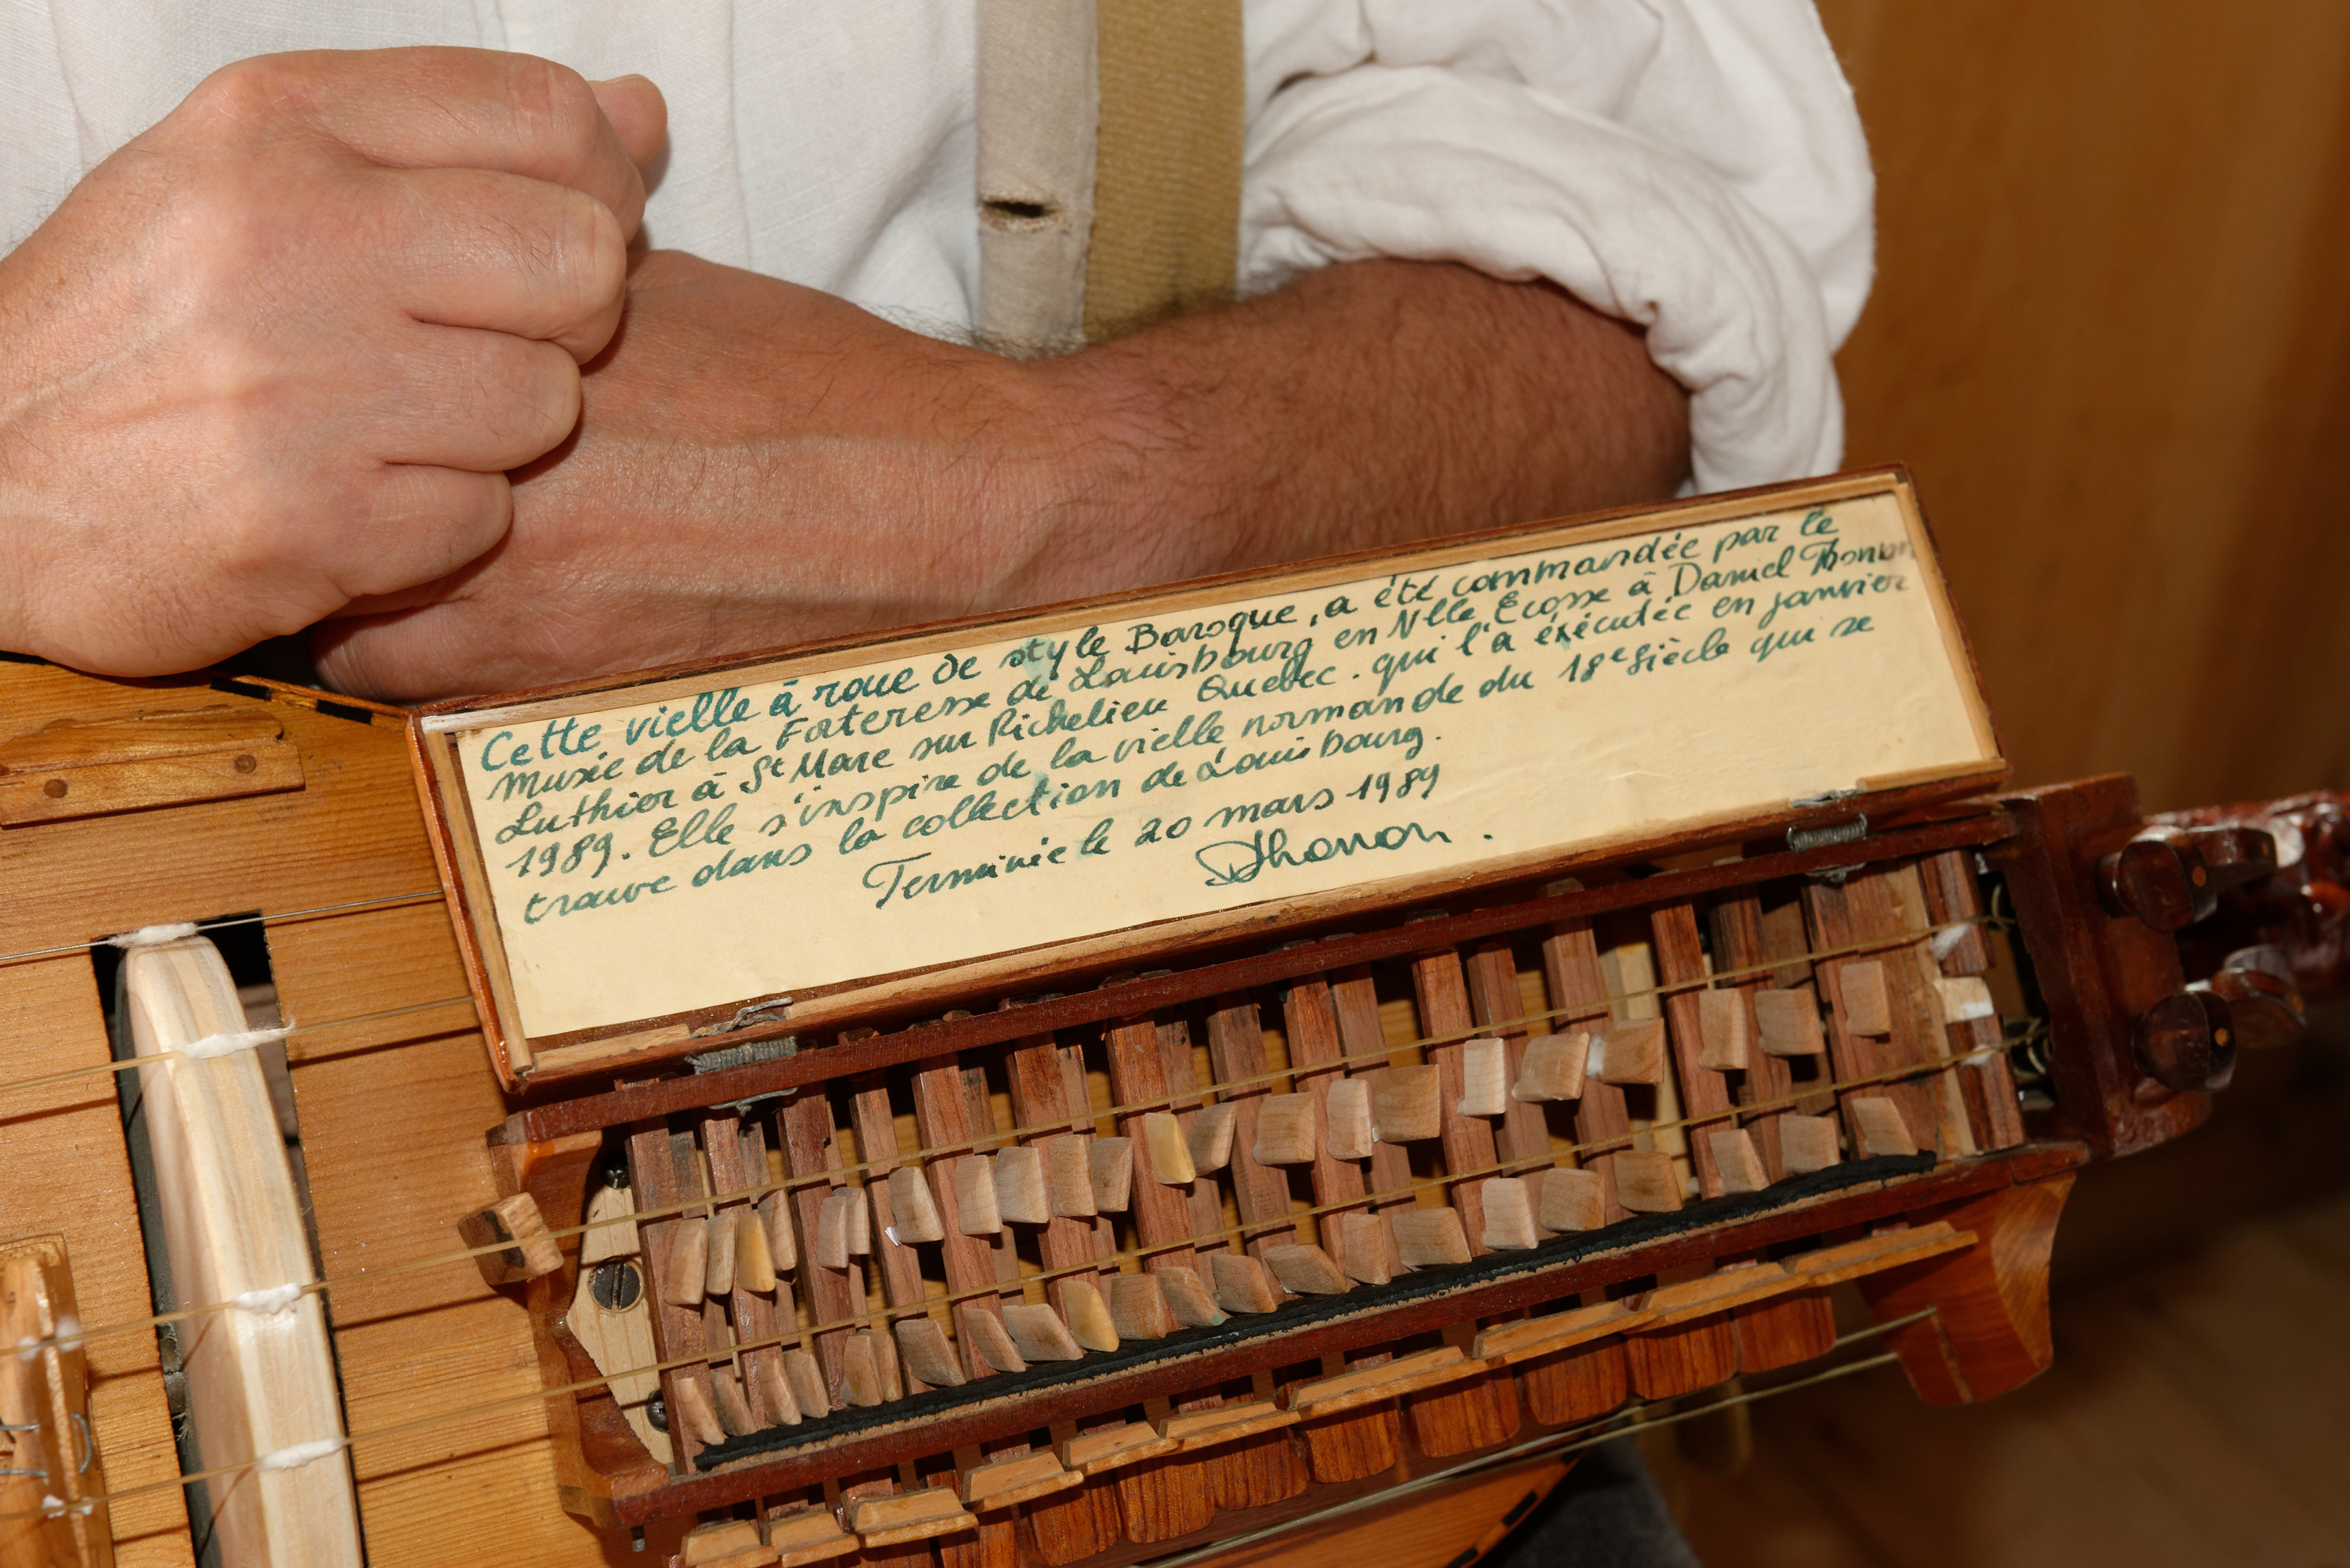 Cette vielle à roue de style Baroque, a été commandée par le
musée de la Forteresse de Louisbourg en Nlle Ecosse à Daniel Thonon
Luthier à St Marc sur Richelieu Quebec. qui l'a éxécutée en janvier
1989. Elle s'inspire de la vielle normande du 18e siècle qui se
trouve dans la collection de Louisbourg.
Terminée le 20 mars 1989
DThonon.